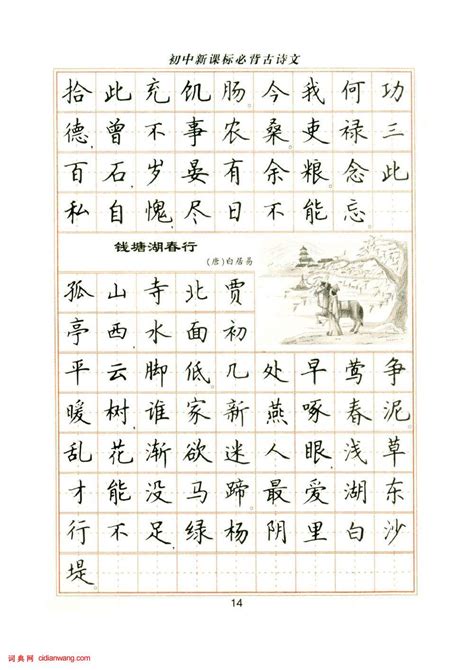 初中新课标必背古诗文
拾此充饥肠。今我何功
德,曾不事农桑。吏禄三
百石,岁晏有余粮。念此
私自愧,尽日不能忘。
钱塘湖春行
(唐)白居易
孤山寺北贾
亭西,水面初
平云脚低。几处早莺争
暖树,谁家新燕啄春泥。
乱花渐欲迷人眼,浅草
才能没马蹄。最爱湖东
行不足,绿杨阴里白沙
堤。
14
词典网 cidianwang.com